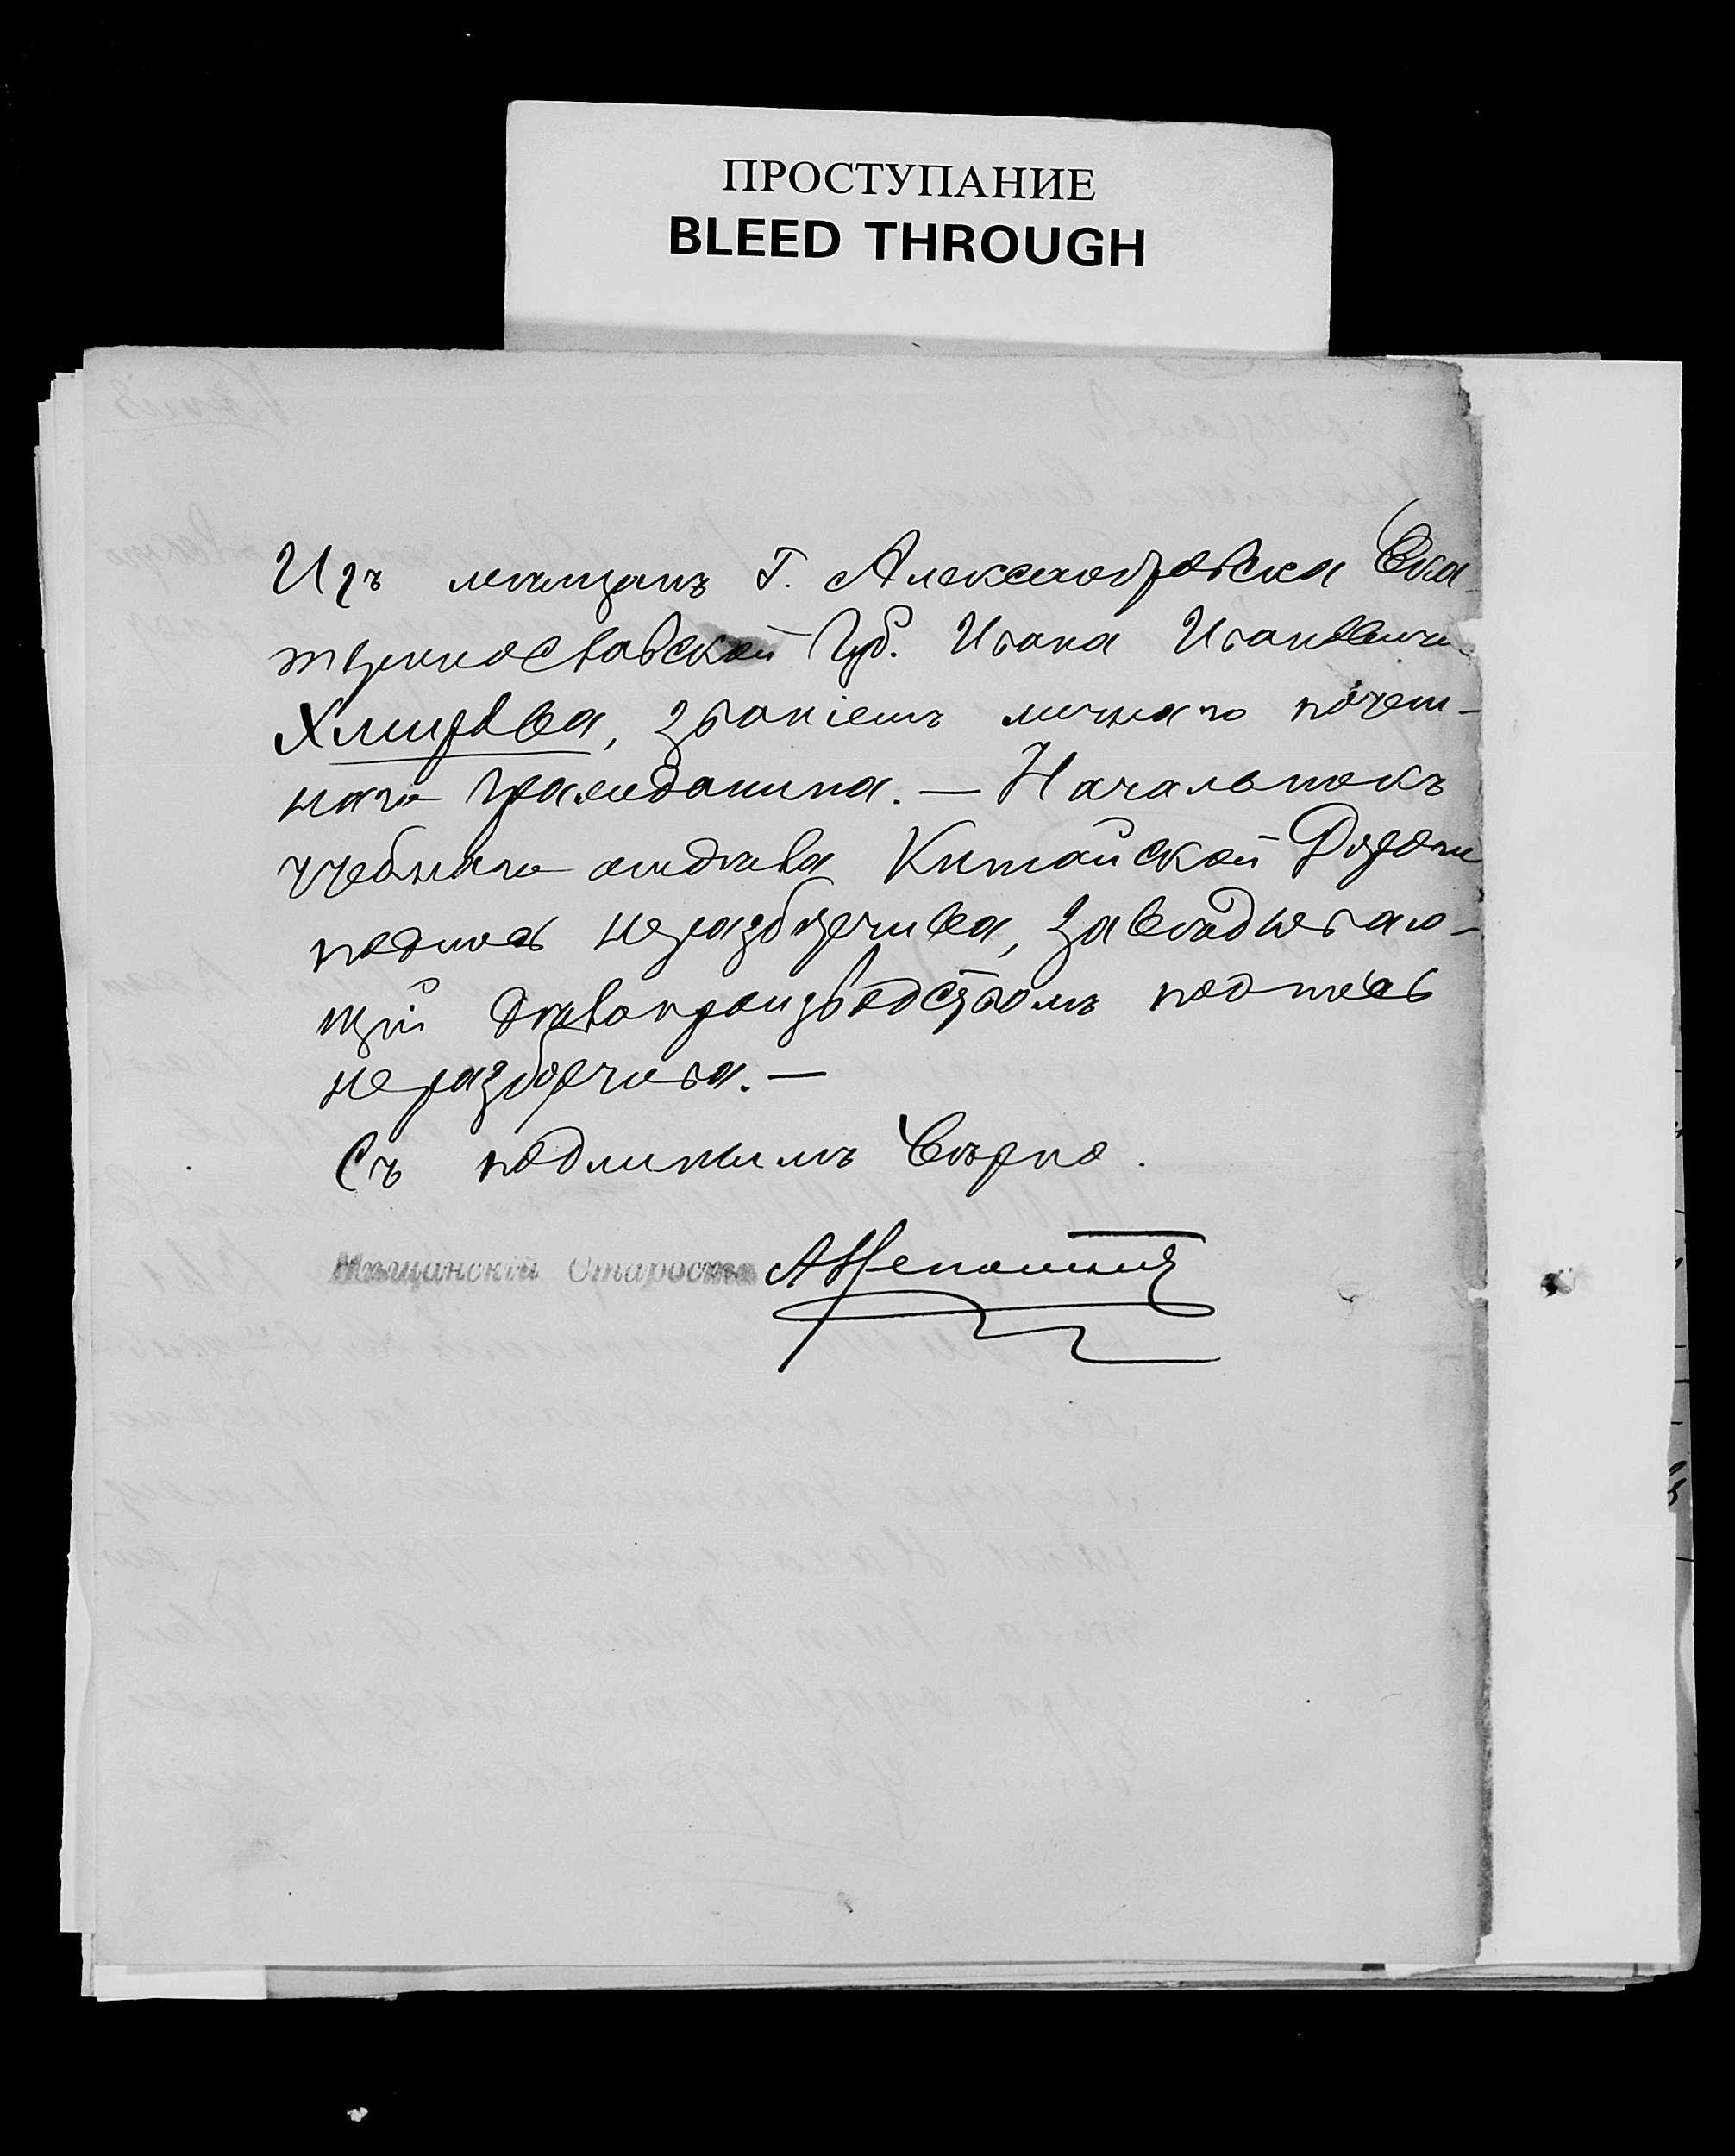 ПРОСТУПАНИЕ
BLEED THROUGH
Изъ мѣщанъ г. Александровска Ека-
теринославской Губ. Ивана Ивановича
Хмирова, званіемъ личнаго почет-
наго гражданина. — Начальникъ
учебнаго отдѣла Китайской Дороги
подпись неразборчива, завѣдываю-
щій дѣлопроизводствомъ подпись
неразборчива. —
Съ подлиннымъ вѣрно.
Мѣщанскій Староста